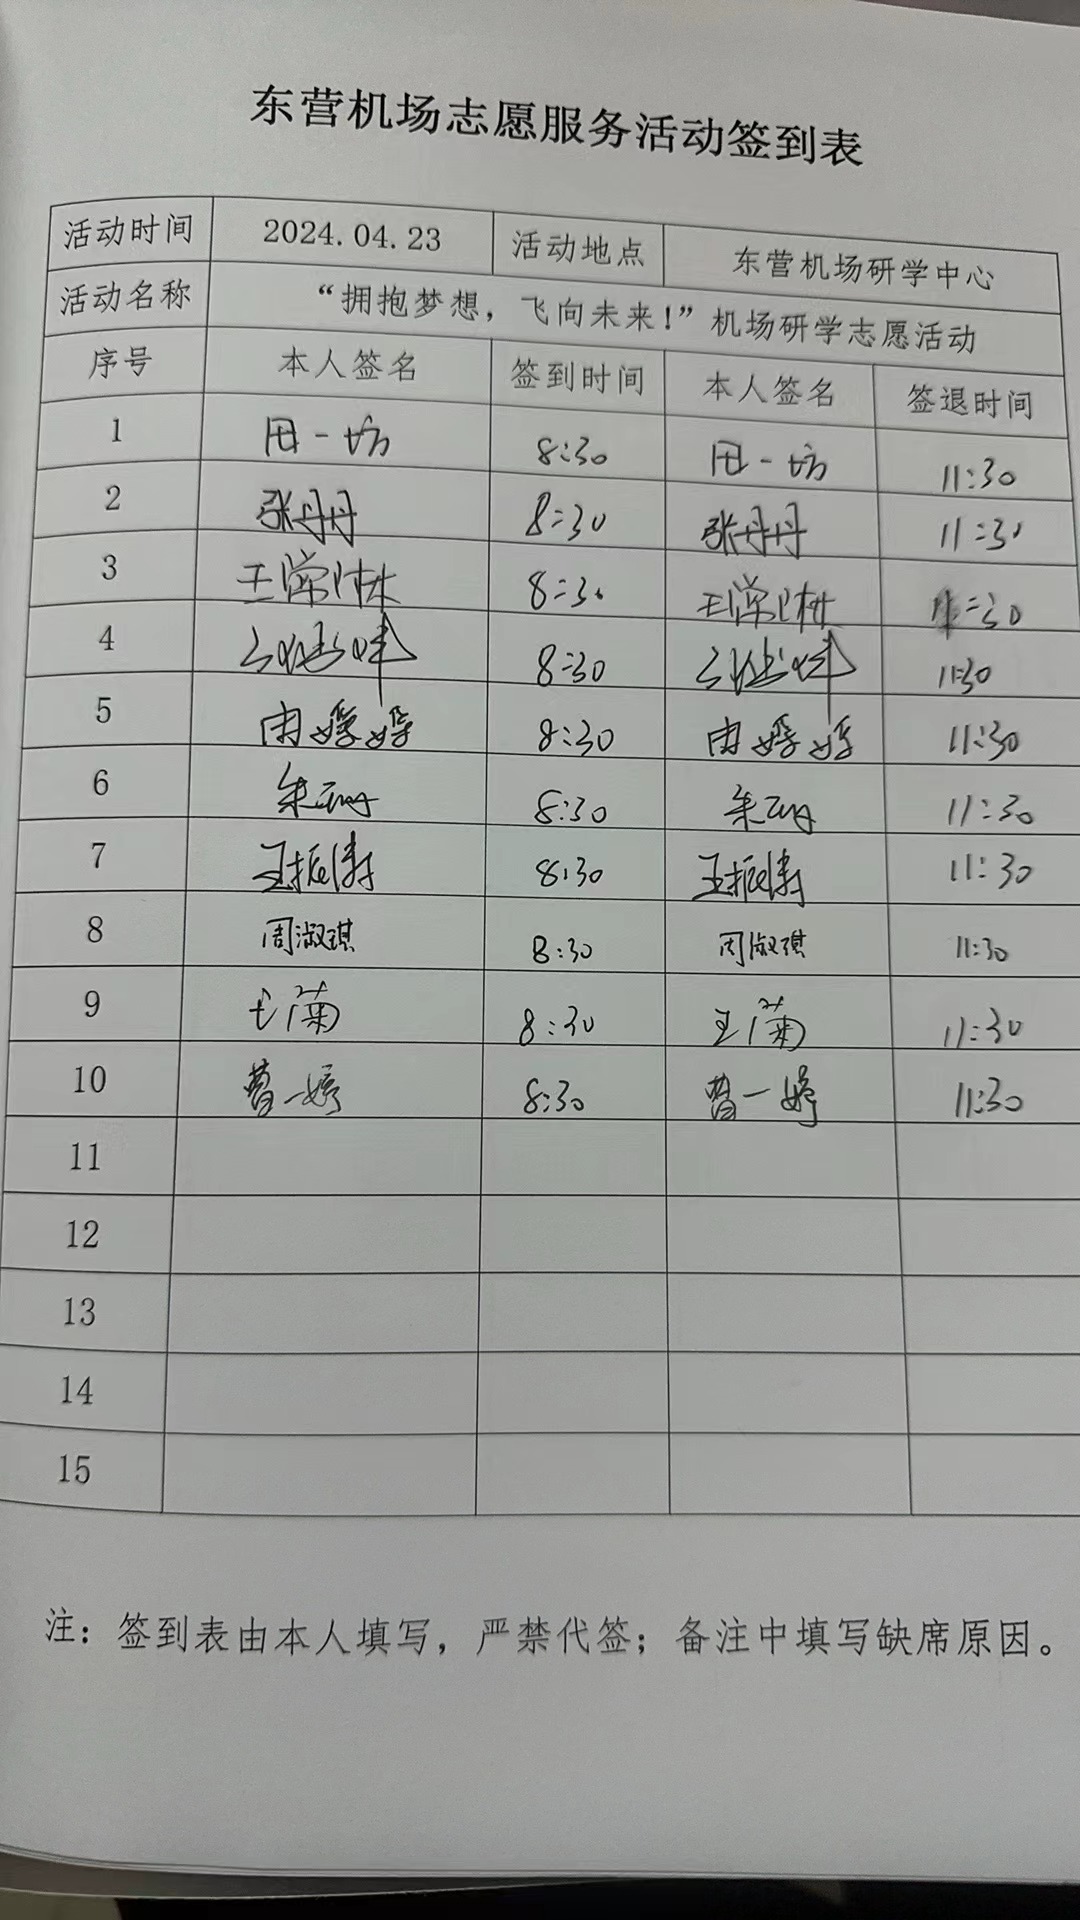 东营机场志愿服务活动签到表
活动时间 2024.04.23 活动地点 东营机场研学中心
活动名称 “拥抱梦想，飞向未来！”机场研学志愿活动
序号 本人签名 签到时间 本人签名 签退时间
1 田一坊 8:30 田一坊 11:30
2 张丹丹 8:30 张丹丹 11:30
3 王 8:30 王 :30
4 8:30 11:30
5 由婷婷 8:30 由婷婷 11:30
6 朱珊 8:30 朱珊 11:30
7 王振涛 8:30 王振涛 11:30
8 周淑琪 8:30 周淑琪 11:30
9 王菊 8:30 王菊 11:30
10 曹一婷 8:30 曹一婷 11:30
11
12
13
14
15
注：签到表由本人填写，严禁代签；备注中填写缺席原因。